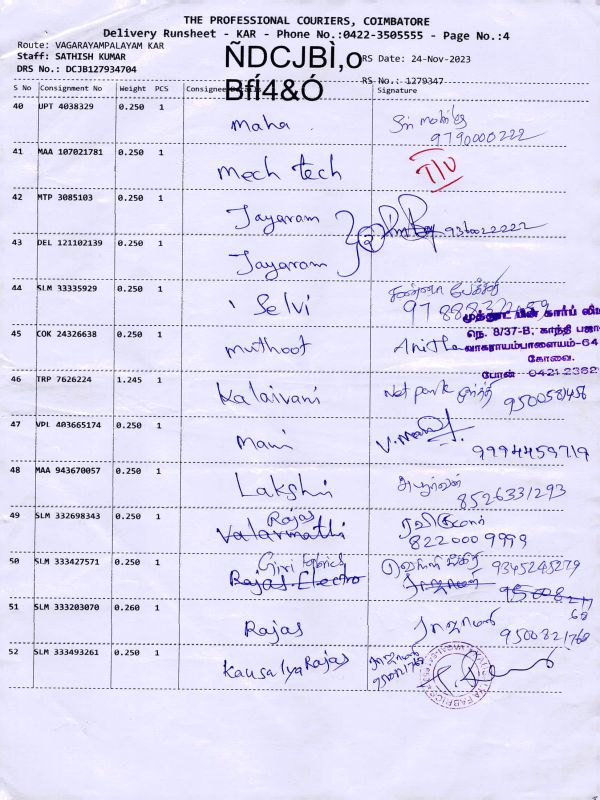 THE PROFESSIONAL COURIERS, COIMBATORE
Delivery Runsheet - KAR - Phone No.:0422-3505555 - Page No.:4
Route: VAGARAYAMPALAYAM KAR
Staff: SATHISH KUMAR
DRS No.: DCJB127934704
ÑDCJBÌ,o
BfÍ4&Ó
RS Date: 24-Nov-2023
RS No.: 1279347
S No Consignment No Weight PCS Consignee Details Signature
40 UPT 4038329 0.250 1 Maha
9790000222
41 MAA 107021781 0.250 1 Mech tech
42 MTP 3085103 0.250 1 Jayaram
43 DEL 121102139 0.250 1 Jayaram
44 SLM 33335929 0.250 1 Selvi
முத்தூட் பின் கார்ப் லிமி
நெ. 8/37-B, காந்தி பஜா
வாகராயம்பாளையம்-64
கோவை.
போன் 04212362
45 COK 24326638 0.250 1 Muthoot Anitha
46 TRP 7626224 1.245 1 Kalaivani
9500581456
47 VPL 403665174 0.250 1 Mani
9994459719
48 MAA 943670057 0.250 1 Lakshi
8526331293
49 SLM 332698343 0.250 1 Rajas
Valarmathi
8220009999
50 SLM 333427571 0.250 1 Giri fabrics 9345245279
Rajas Electro
51 SLM 333203070 0.260 1 Rajas ராஜாமணி
9500821768
52 SLM 333493261 0.250 1 Kausalya Rajas